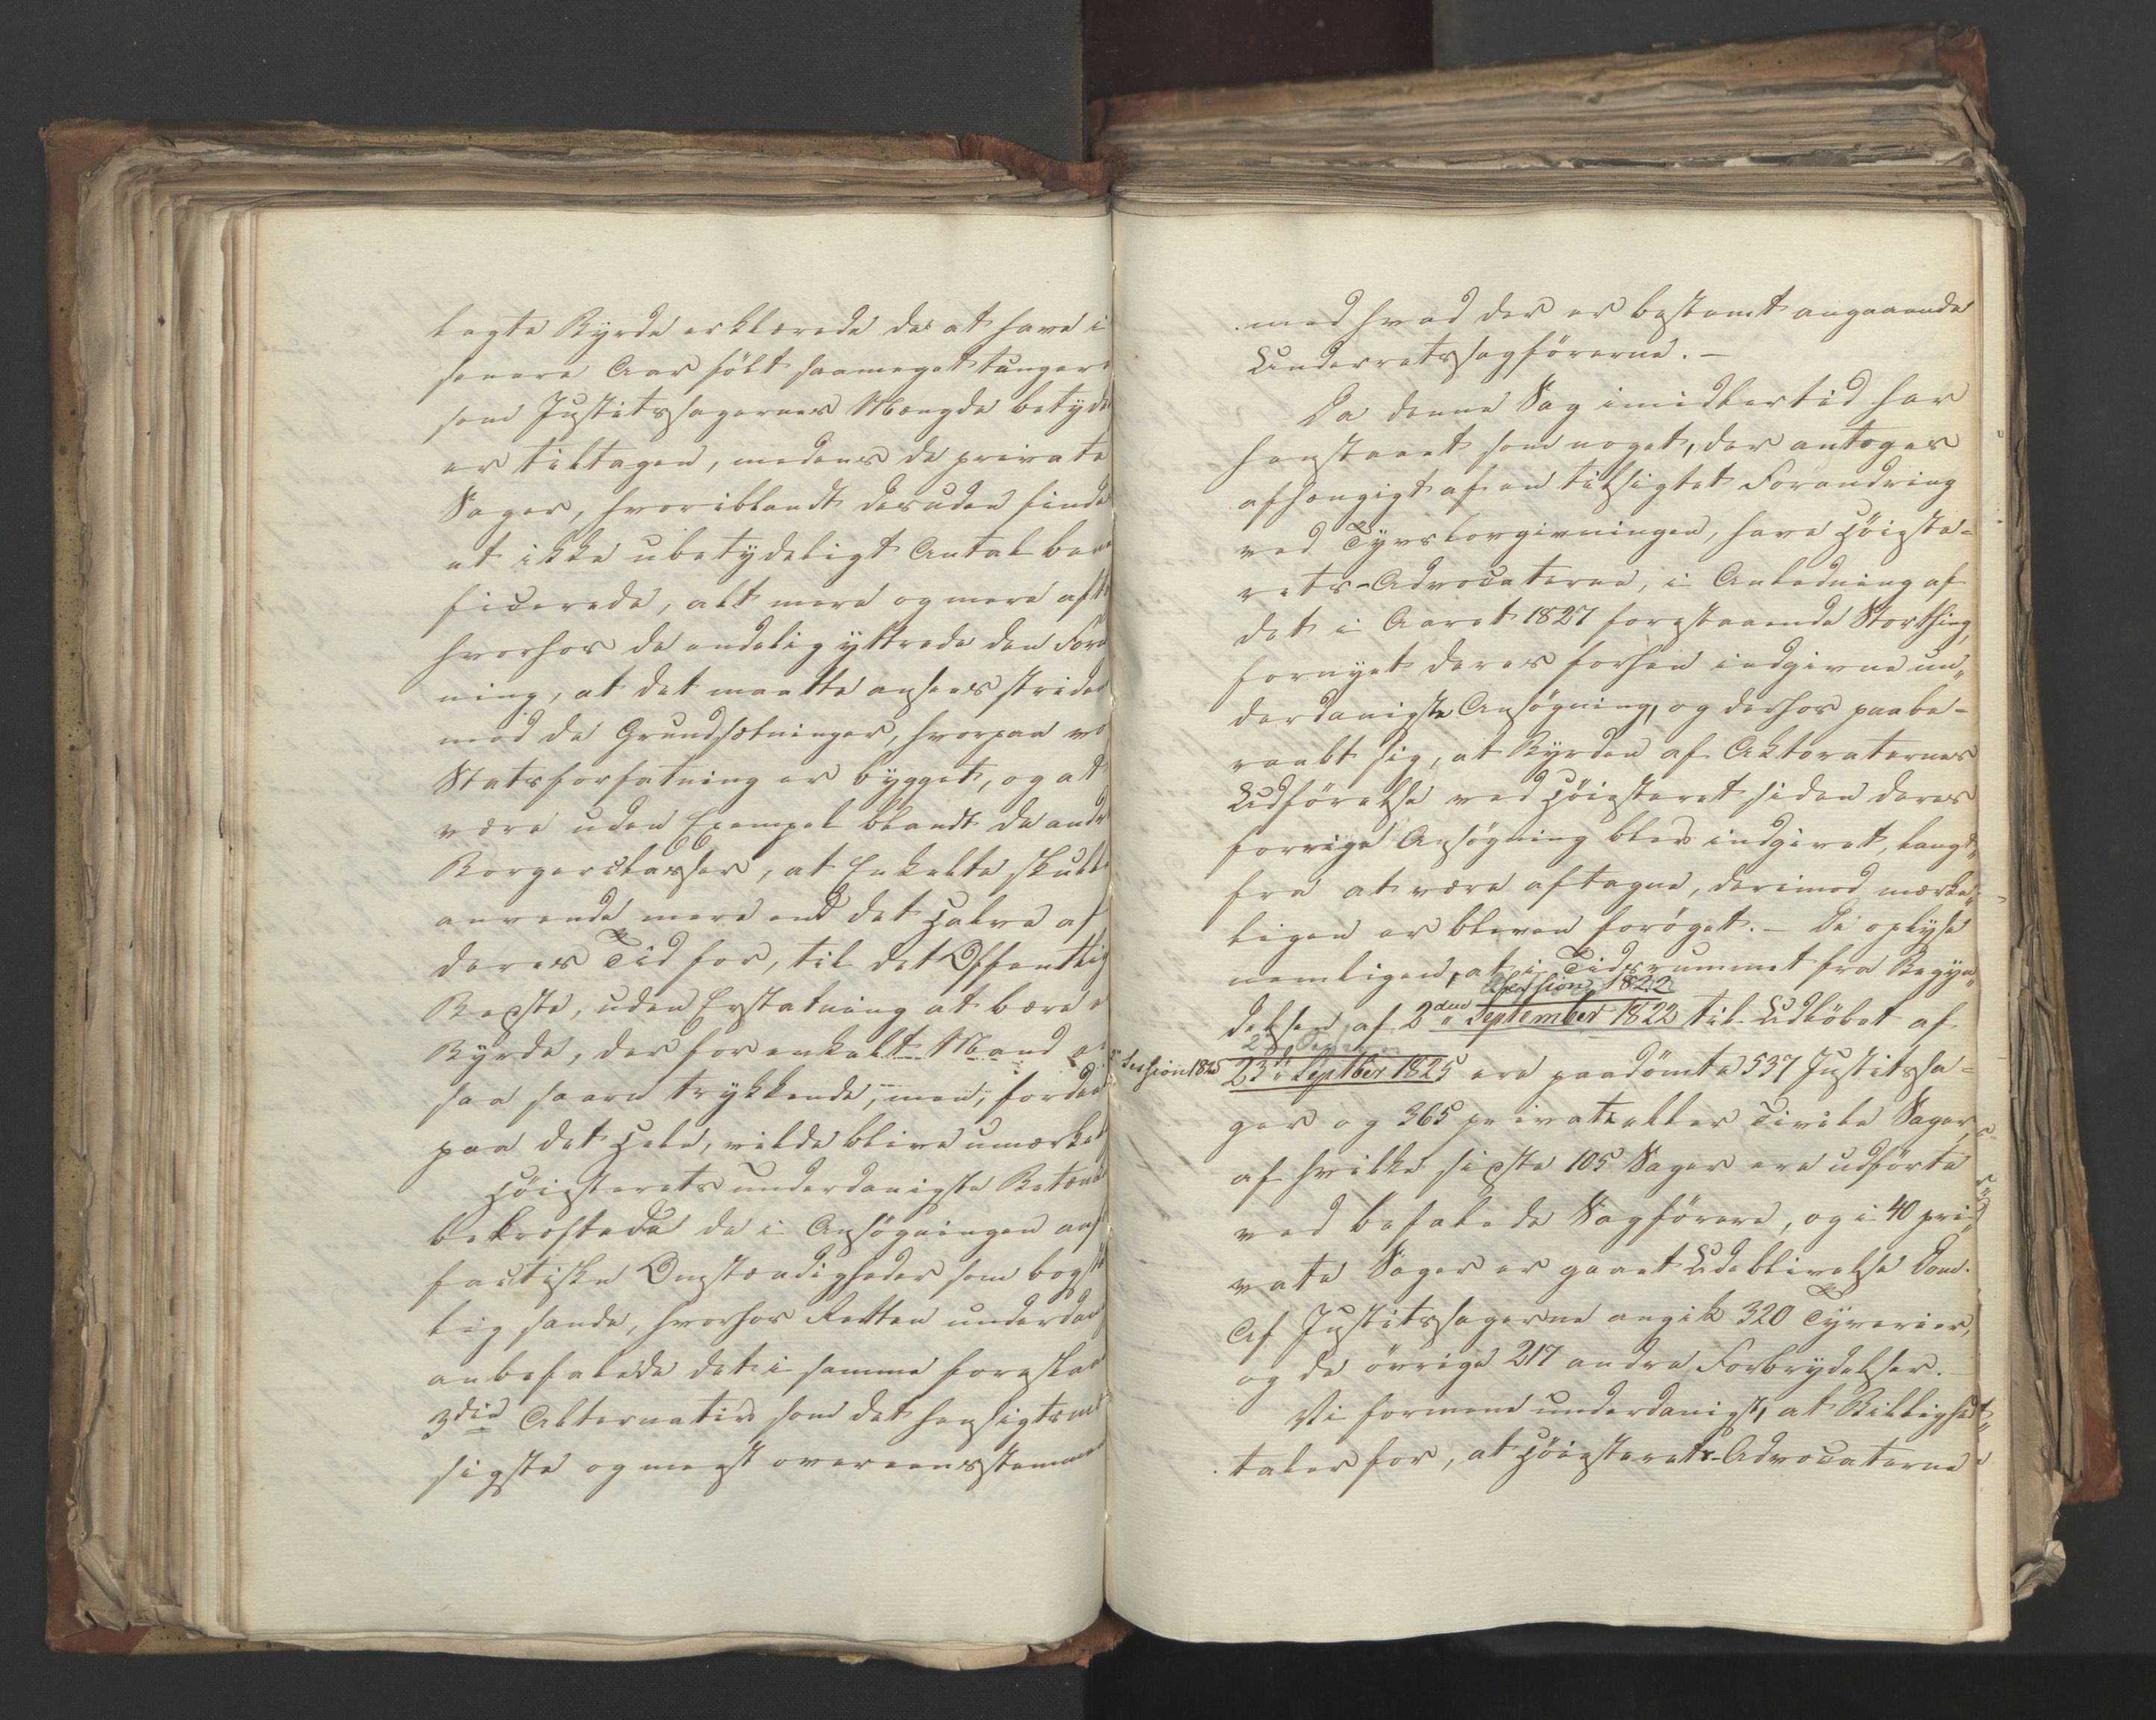 lagte Byrde erklærede de at have i
senere Aar følt saameget tungere
som Justitssagernes Mængde betyde
er tiltagen, medens de private
Sager, hvoriblandt desuden finde
et ikke ubetydeligt Antal bene
ficerede, alt mere og mere afta
hvorhos de endelig yttrede den Form
ning, at det maatte ansees stride
mod de Grundsætninger, hvorpaa vo
Statsforfatning er bygget, og at
være uden Exempel blandt de andre
Borgerclasser, at Enkelte skulle
anvende mere end det Halve af
deres Tid for, til det Offentlig
Bedste, uden Erstatning at bære e
Byrde, der for enkelt Mand er
saa saare trykkende, men, fordeel
paa det Hele, vilde blive umærkel
Høiesterets underdanigste Betænk
bekræftede de i Ansøgningen anf
factiske Omstændigheder som bogst
lig sande, hvorhos Retten underdan
anbefalede det i samme foreslaa
3die Alternativ som det hensigtsmæs
sigste og meest overeensstemmen
med hvad der er bestemt angaaende
Underretssagførerne. –
Da denne Sag imidlertid har
henstaaet som noget, der antoges
afhængigt af en tilsigtet Forandring
ved Tyvslovgivningen, have Høieste-
rets-Advocaterne, i Anledning af
det i Aaret 1827 forestaaende Storthing,
fornyet deres forhen indgivne un„
derdanigste Ansøgning, og derhos paabe-
raabt sig, at Byrden af Aktoraternes
Udførelse ved Høiesteret siden deres
forrige Ansøgning blev indgivet, langt„
fra at være aftagne, derimod mærke„
ligen er bleven forøget. – De oplyse
nemligen, at i Tidsrummet fra Begyn„
Session 1822
delsen af 2den September 1822 til Udløbet af
Session 1825
23de Septber 1825 ere paadømte 537 Justitssa-
ger og 365 private eller Civile Sager,
af hvilke sidste 105 Sager ere udførte
ved befalede Sagførere, og i 40 pri„
vate Sager er gaaet Udeblivelse Dom.
Af Justitssagerne angik 320 Tyverier,
og de øvrige 217 andre Forbrydelser. –
Vi formene underdanigst, at Billighed
taler for, at Høiesterets-Advocaterne